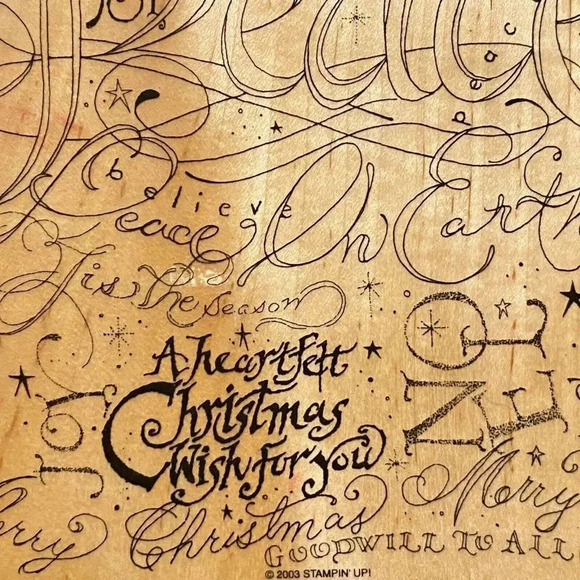 Joy
Peace
peac
believe
Peace On Earth
'Tis The season
NOEL
A heartfelt
Christmas
Wish for you
Joy
Merry
Christmas
Merry
GOODWILL TO ALL
© 2003 STAMPIN' UP!